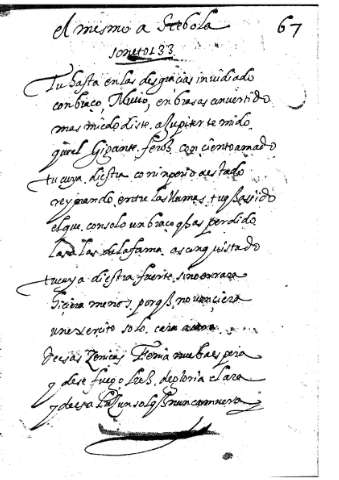 el mesmo a Scebola
67
soneto 133
Tu hasta en las desgracias inuidiado
con braço, Mucio, en brasas conuertido
mas miedo diste a Jupiter temido
quel Gigante feroz con ciento armado
tu cuya diestra con imperio estado
reynando entre las llamas, tu q has sido
el que con solo un braço q has perdido
las alas de la fama as conquistado
tu cuya diestra fuerte, si no errara
hiciera menos, porq no venciera
un exercito solo, cara a cara
de esas cenizas Fenix nueba espera
y de ese fuego luz de gloria clara
y de esa luz un sol q nunca muera